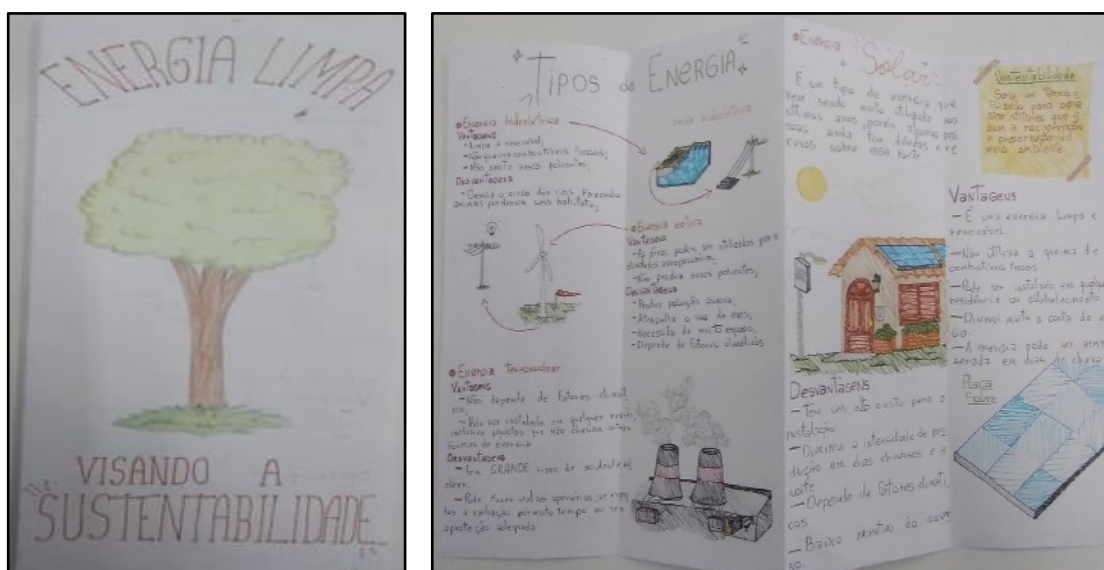 ENERGIA LIMPA
VISANDO A
SUSTENTABILIDADE
TIPOS de ENERGIA
Energia hidrelétrica
Vantagens
- Limpa e renovável;
- Não queima combustíveis fósseis;
- Não emite gases poluentes;
Desvantagens
- Desvia o curso dos rios, fazendo
animais perderem seus habitats;
usina hidrelétrica
Energia eólica
Vantagens
- As áreas podem ser utilizadas para
atividades agropecuárias;
- Não produz gases poluentes;
Desvantagens
- Produz poluição sonora;
- Atrapalha o voo de aves;
- Necessita de muito espaço;
- Depende de fatores climáticos
Energia termonuclear
Vantagens
- Não depende de fatores climáti
cos;
- Pode ser instalada em qualquer
inclusive aquelas que não chegam outras
formas de energia
Desvantagens
- Tem GRANDE risco de acidente nu
clear
- Pode fazer mal aos operários, se
a radiação por muito tempo ou sem
a proteção adequada
Energia
Solar
É um tipo de energia que
vem sendo muito utilizada nos
últimos anos, porém, algumas pes
soas ainda tem dúvidas e re
ceios sobre essa fonte
Sustentabilidade
Seria um termo u
tilizado para
atitudes que
a
e preservação do
meio ambiente.
Vantagens
- É uma energia limpa e
renovável.
- Não utiliza a queima de
combustíveis fósseis.
- Pode ser instalado em qualquer
residência ou estabelecimento
- Diminui muito a conta de
gia.
- A energia pode ser arma
zenada em dias de chuva
Placa
Solar
Desvantagens
- Tem um alto custo para a
instalação
- Diminui a intensidade de pro
dução em dias chuvosos e à
noite
- Depende de fatores climáti
cos
- Baixo incentivo do gover
no